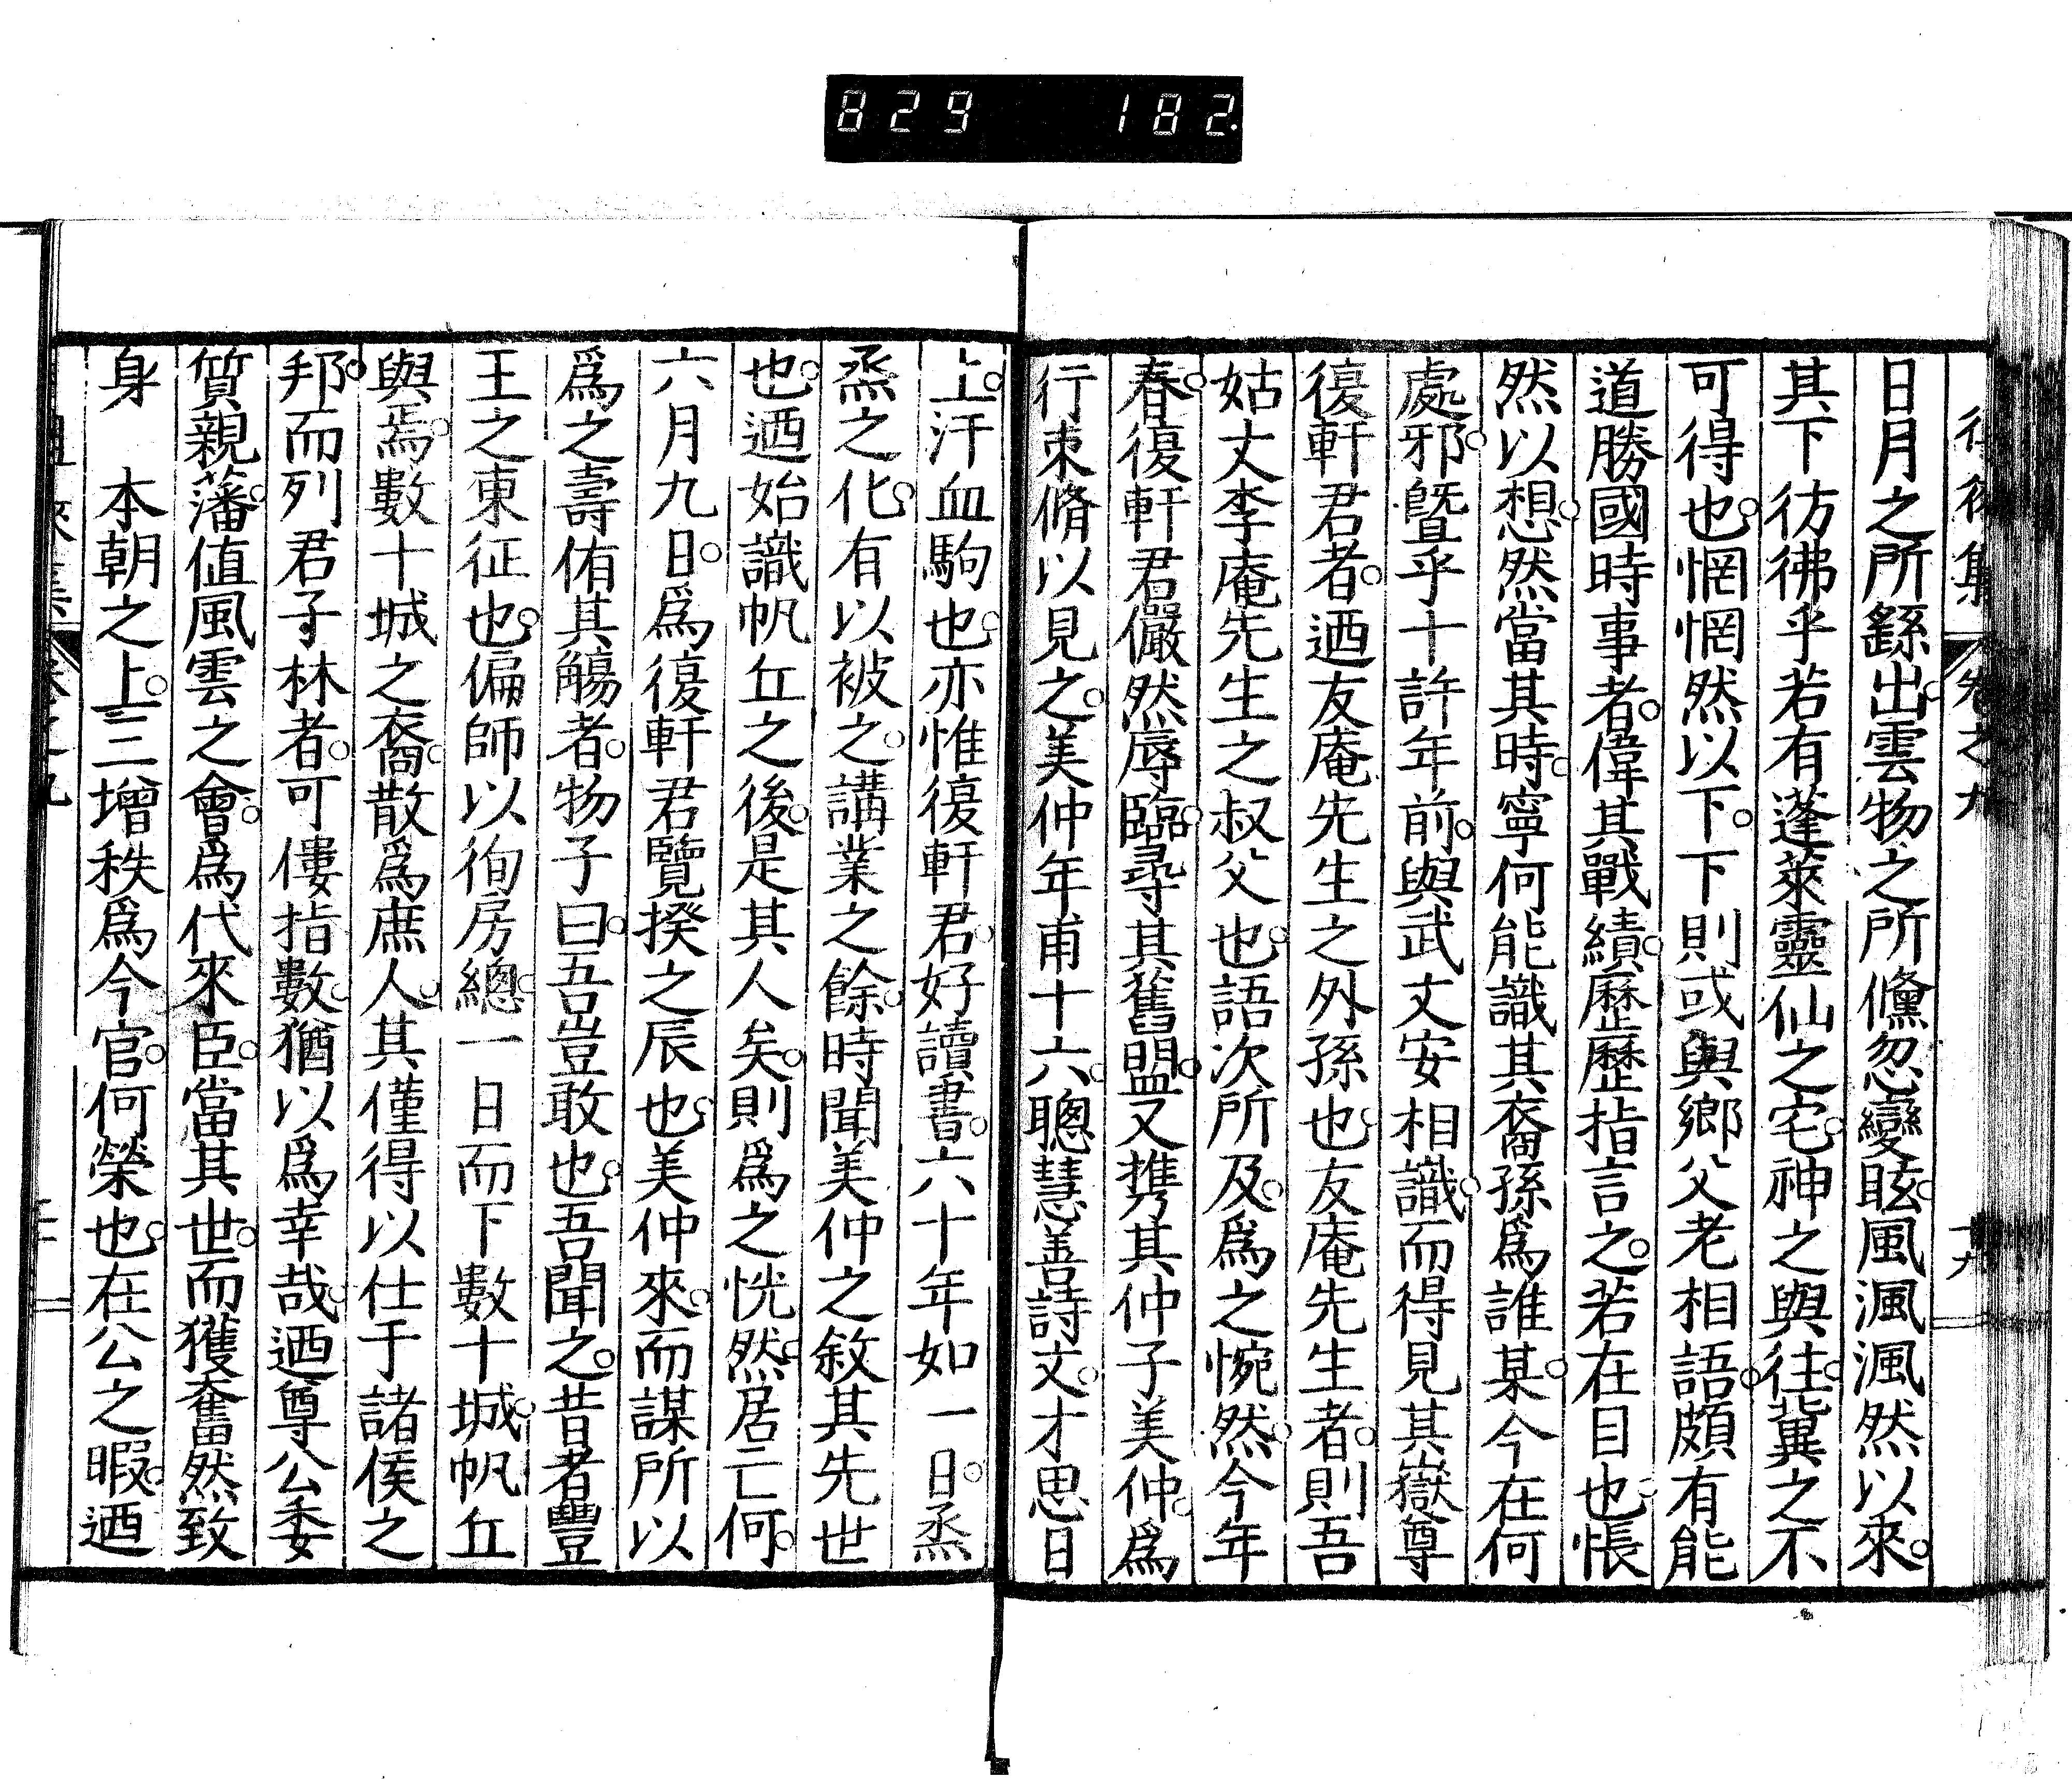 829 182.
日月之所繇出雲物之所儵忽變眩風渢渢然以來
其下彷彿乎若有蓬萊靈仙之宅神之與往冀之不
可得也惘惘然以下下則或與鄉父老相語頗有能
道勝國時事者偉其戰績歷歷指言之若在目也悵
然以想然當其時寧何能識其裔孫爲誰某今在何
處邪曁乎十許年前與武丈安相識而得見其嶽尊
復軒君者迺友庵先生之外孫也友庵先生者則吾
姑丈李庵先生之叔父也語次所及爲之惋然今年
春復軒君儼然辱臨尋其舊盟又携其仲子美仲爲
行束脩以見之美仲年甫十六聰慧善詩文才思日
上汗血駒也亦惟復軒君好讀書六十年如一日烝
烝之化有以被之講業之餘時聞美仲之敘其先世
也迺始識帆丘之後是其人矣則爲之恍然居亡何
六月九日爲復軒君覽揆之辰也美仲來而謀所以
爲之壽侑其觴者物子曰吾豈敢也吾聞之昔者豐
王之東征也偏師以徇房總一日而下數十城帆丘
與焉數十城之裔散爲庶人其僅得以仕于諸侯之
邦而列君子林者可僂指數猶以爲幸哉迺尊公委
質親藩値風雲之會爲代來臣當其世而獲奮然致
身　本朝之上三增秩爲今官何榮也在公之暇迺